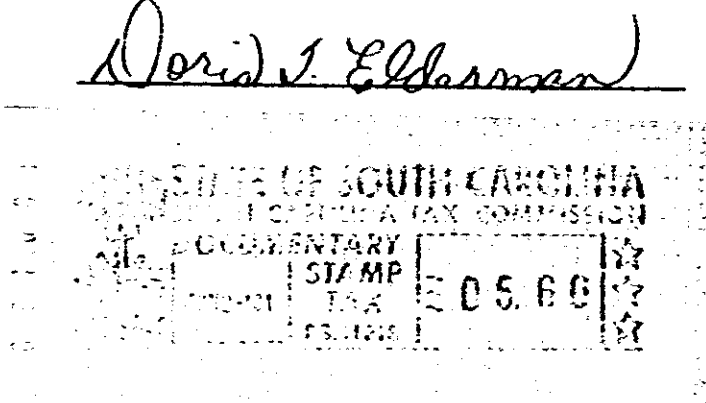 Doris T. Elderman
STATE OF SOUTH CAROLINA
CAROLINA TAX COMMISSION
DOCUMENTARY
STAMP
TAX
05.60